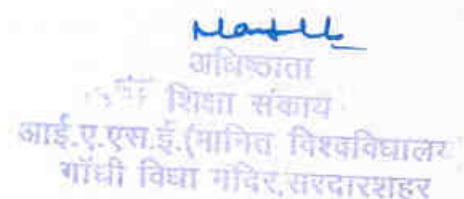 अधिष्ठाता
शिक्षा संकाय
आई.ए.एस.ई.(मानित विश्वविद्यालय
गाँधी विद्या मंदिर,सरदारशहर